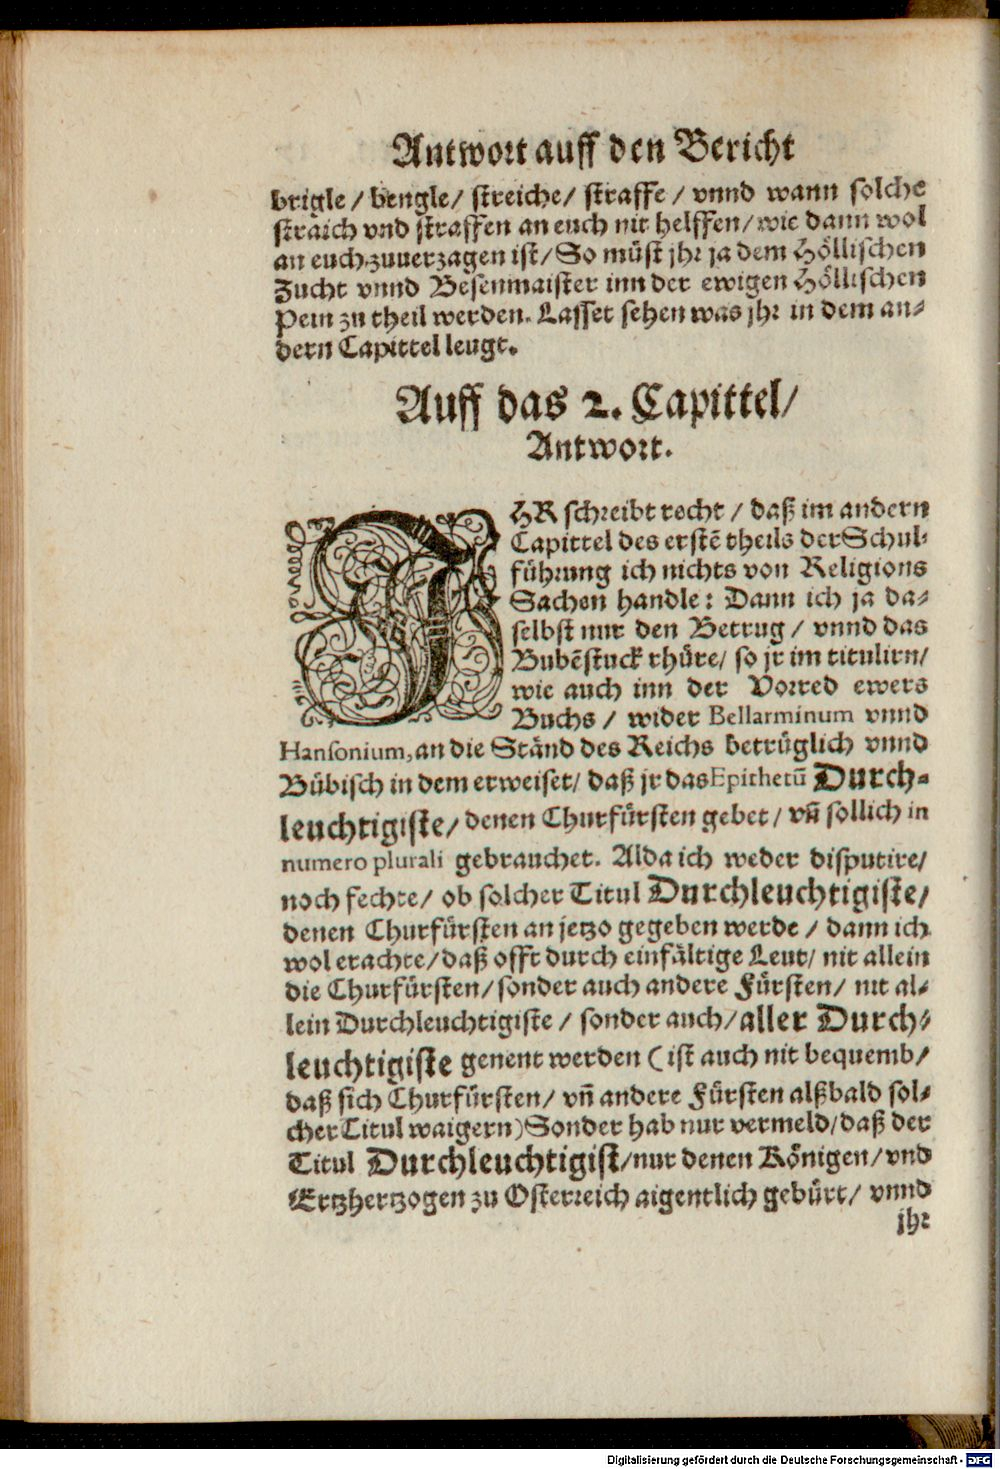 Antwort auff den Bericht
brigle / bengle / streiche / straffe / vnnd wann solche
straich vnd straffen an euch nit helffen / wie dann wol
an euch zuuerzagen ist / So müst jhr ja dem Höllischen
Zucht vnnd Besenmaister inn der ewigen Höllischen
Pein zu theil werden. Lasset sehen was jhr in dem an-
dern Capittel leugt.
Auff das 2. Capittel /
Antwort.
IHR schreibt recht / daß im andern
Capittel des erstē theils der Schul-
führung ich nichts von Religions
Sachen handle: Dann ich ja da-
selbst nur den Betrug / vnnd das
Bubēstuck rhüre / so jr im titulirn /
wie auch inn der Vorred ewers
Buchs / wider Bellarminum vnnd
Hansonium, an die Ständ des Reichs betrüglich vnnd
Bübisch in dem erweiset / daß jr das Epithetū Durch-
leuchtigiste / denen Churfürsten gebet / vñ sollich in
numero plurali gebrauchet. Alda ich weder disputire /
noch fechte / ob solcher Titul Durchleuchtigiste /
denen Churfürsten an jetzo gegeben werde / dann ich
wol erachte / daß offt durch einfältige Leut / nit allein
die Churfürsten / sonder auch andere Fürsten / nit al-
lein Durchleuchtigiste / sonder auch / aller Durch-
leuchtigiste genent werden ( ist auch nit bequemb /
daß sich Churfürsten / vñ andere Fürsten alßbald sol-
cher Titul waigern) Sonder hab nur vermeld / daß der
Titul Durchleuchtigist / nur denen Königen / vnd
Ertzhertzogen zu Osterreich aigentlich gebürt / vnnd
jhr
Digitalisierung gefördert durch die Deutsche Forschungsgemeinschaft - DFG